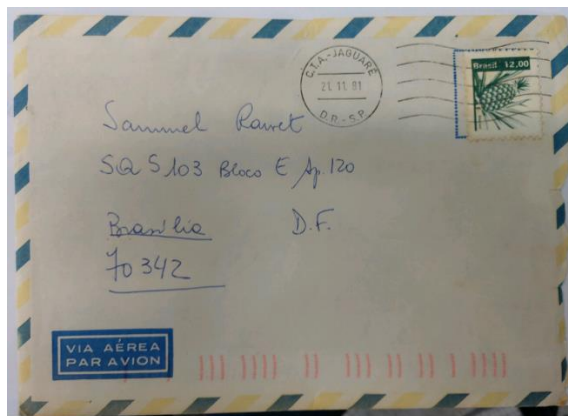 C.T.A.-JAGUARÉ
21 11 81
D.R.-S.P.
Brasil 12,00
Sammel Rawet
SQS 103 Bloco E Ap. 120
Brasília D.F.
70342
VIA AÉREA
PAR AVION